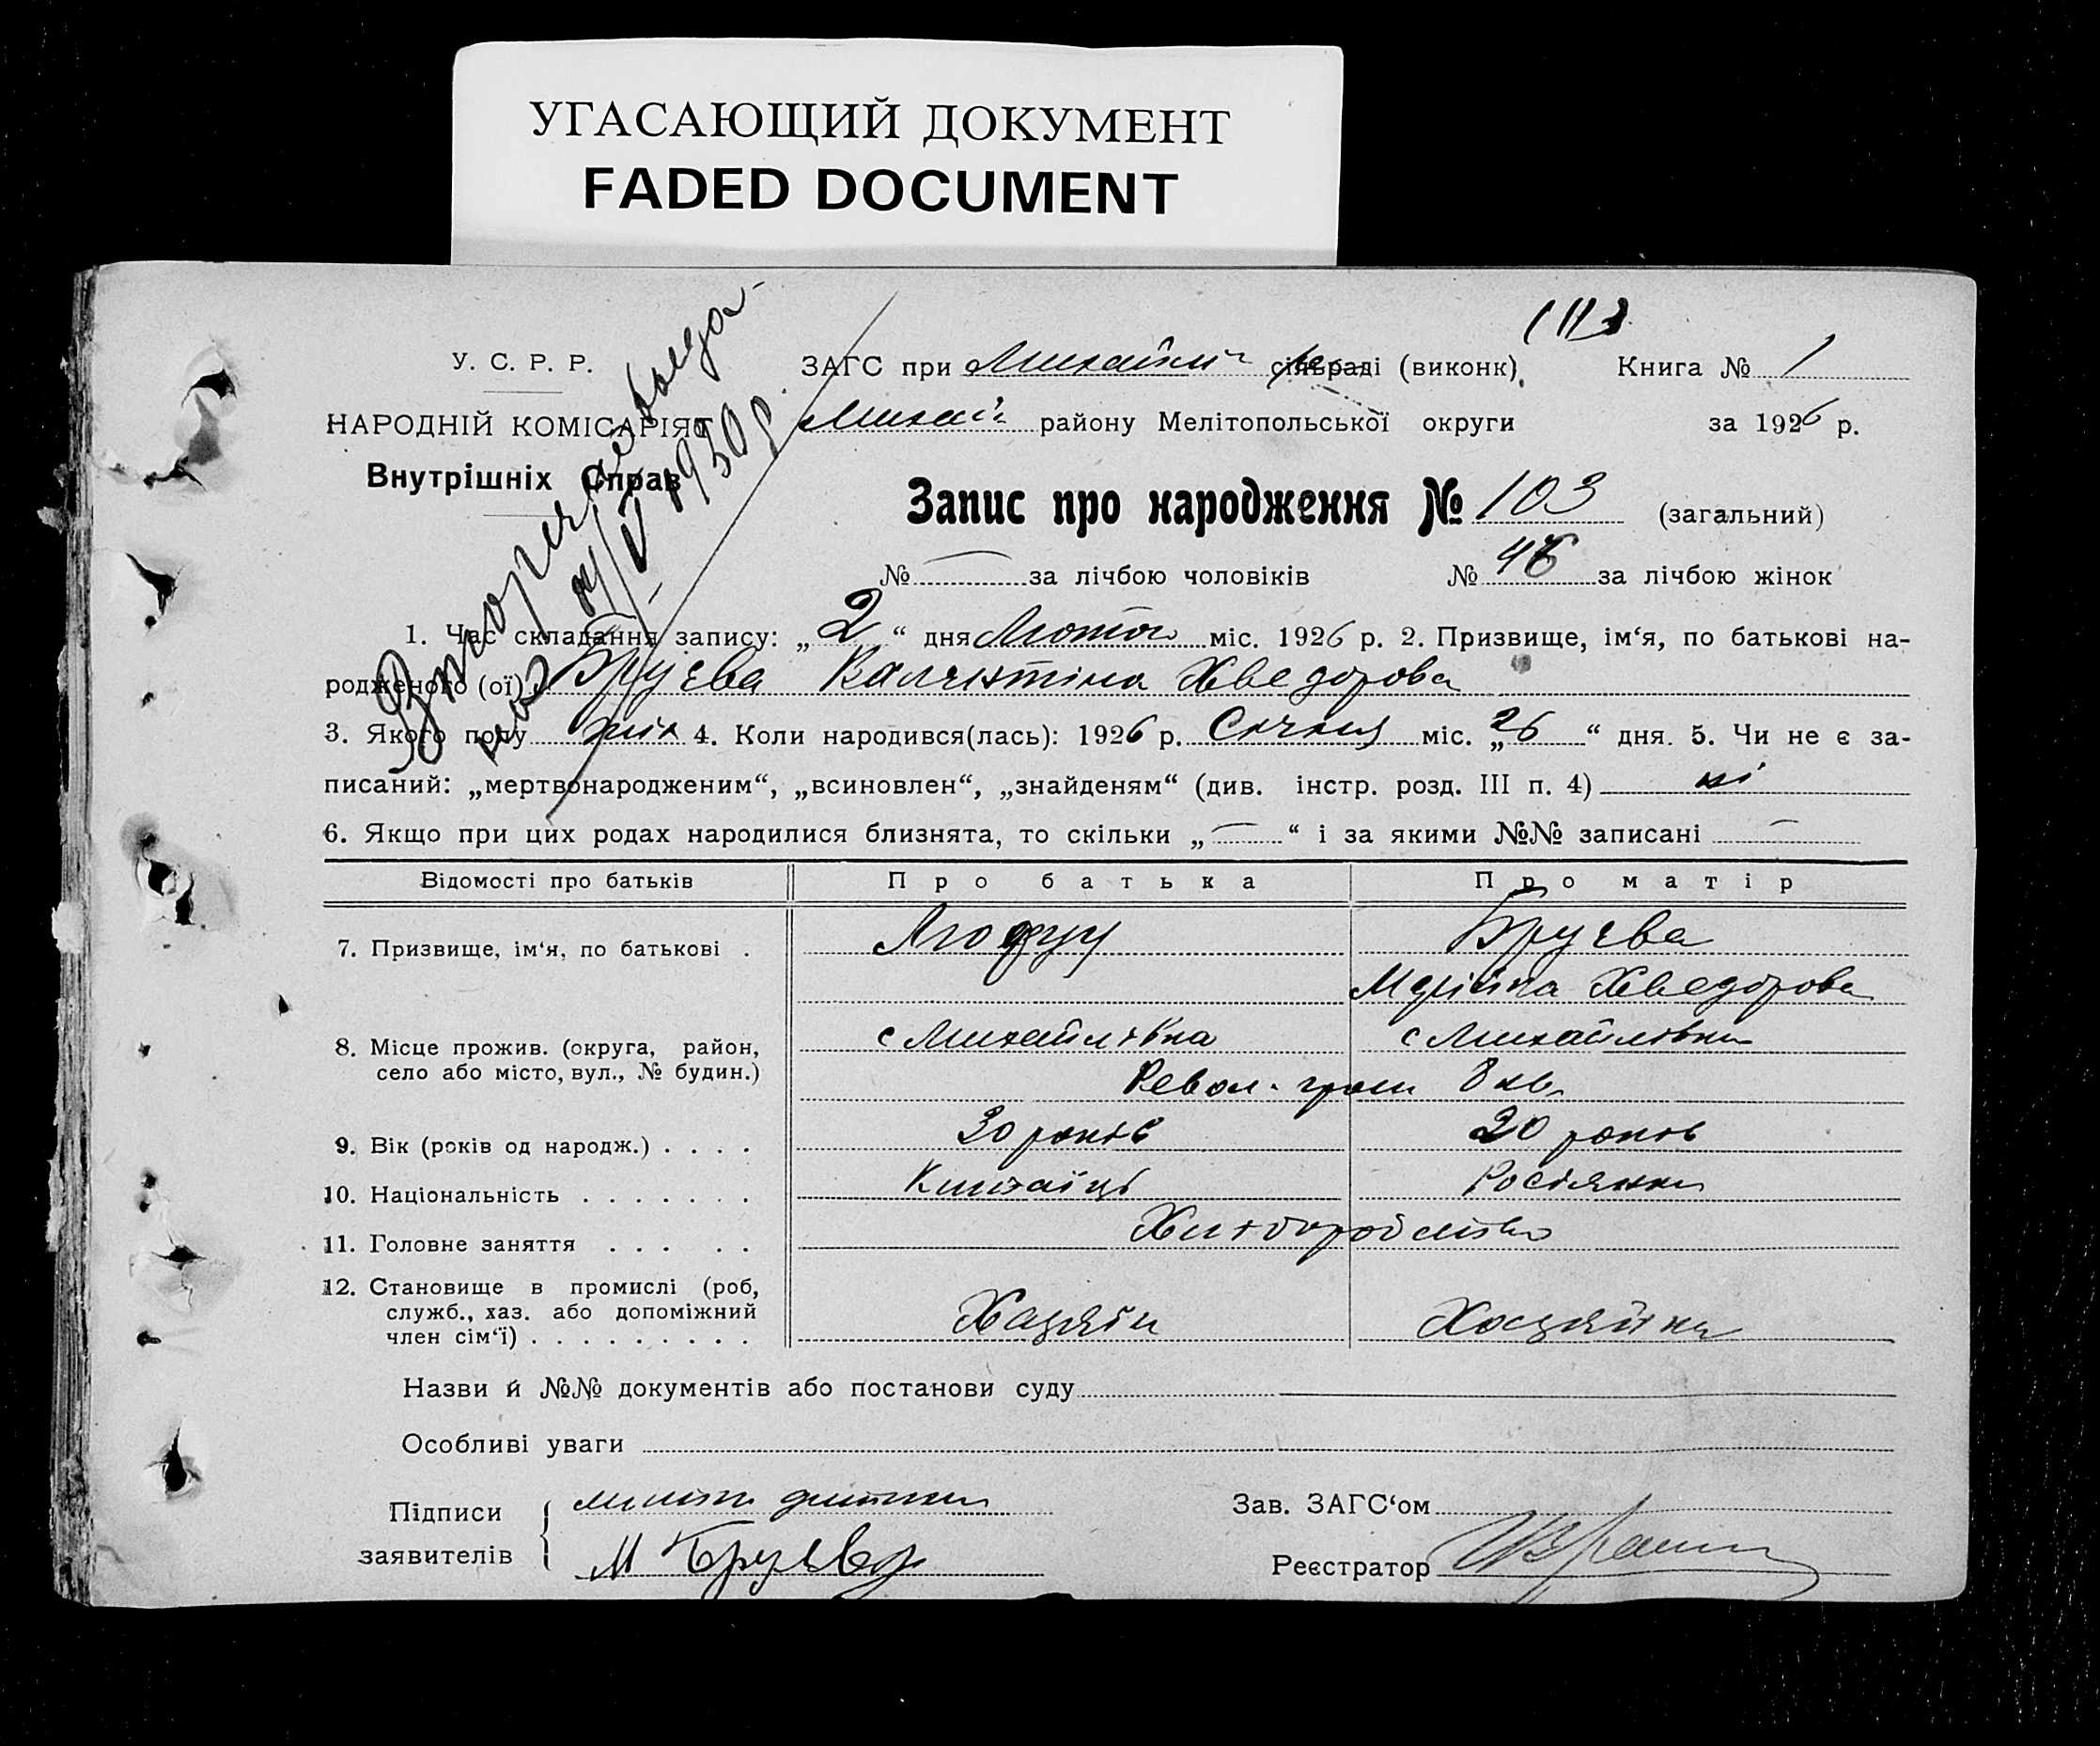 УГАСАЮЩИЙ ДОКУМЕНТ
FADED DOCUMENT
У. С. Р. Р.
НАРОДНІЙ КОМІСАРІЯТ
Внутрішніх Справ
на 1930 р
ЗАГС при сільраді (виконк) Книга № 1
району Мелітопольської округи за 1926 р.
Запис про народження № 103 (загальний)
№ — за лічбою чоловіків № 46 за лічбою жінок
1. Час складання запису: „2“ дня Лютого міс. 1926 р. 2. Призвище, ім‘я, по батькові на-
родженого (ої) Бруєва Валентіна Хведорова
3. Якого полу жін 4. Коли народився(лась): 1926 р. Січня міс. „26“ дня. 5. Чи не є за-
писаний: „мертвонародженим“, „всиновлен“, „знайденям“ (див. інстр. розд. III п. 4) ні
6. Якщо при цих родах народилися близнята, то скільки „—“ і за якими №№ записані —
Відомості про батьків Про батька Про матір
7. Призвище, ім‘я, по батькові . Бруєва
Хведорова
8. Місце прожив. (округа, район, село або місто, вул., № будин.) с Михайлівка с Михайлівка
Револ. 8 кв.
9. Вік (років од народж.) . . . . 30 років 20 років
10. Національність . . . . . . . Китаїць Росіянка
11. Головне заняття . . . . . Хліборобство
12. Становище в промислі (роб, служб., хаз. або допоміжний член сім‘ї) . . . . . . . . . Хазяїн Хазяйка
Назви й №№ документів або постанови суду
Особливі уваги
Підписи заявителів
М Бруєва
Зав. ЗАГС‘ом
Реєстратор